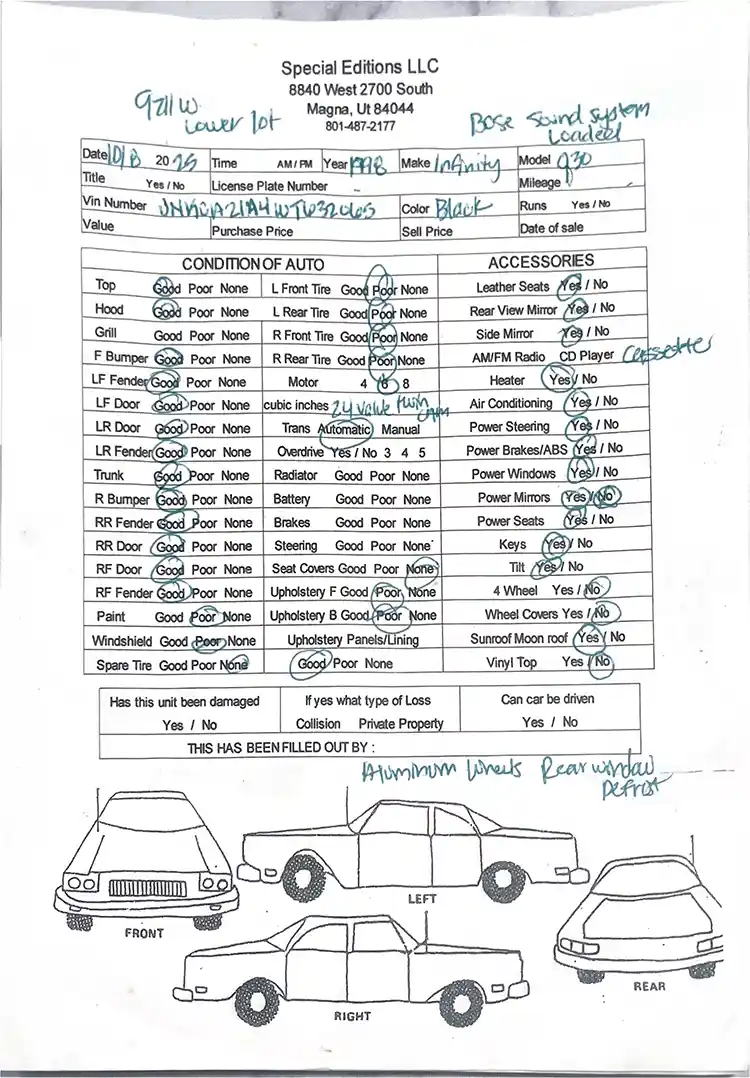 Special Editions LLC
8840 West 2700 South
Magna, Ut 84044
801-487-2177
9211 W
Lower lot
Bose Sound System
Loaded
Date 10/8 2025 Time AM / PM Year 1998 Make Infinity Model Q30
Title Yes / No License Plate Number - Mileage
Vin Number Color Black Runs Yes / No
Value Purchase Price Sell Price Date of sale
CONDITION OF AUTO ACCESSORIES
Top Good Poor None L Front Tire Good Poor None Leather Seats Yes / No
Hood Good Poor None L Rear Tire Good Poor None Rear View Mirror Yes / No
Grill Good Poor None R Front Tire Good Poor None Side Mirror Yes / No
F Bumper Good Poor None R Rear Tire Good Poor None AM/FM Radio CD Player Cassetter
LF Fender Good Poor None Motor 4 6 8 Heater Yes / No
LF Door Good Poor None cubic inches 24 valve twin cam Air Conditioning Yes / No
LR Door Good Poor None Trans Automatic Manual Power Steering Yes / No
LR Fender Good Poor None Overdrive Yes / No 3 4 5 Power Brakes/ABS Yes / No
Trunk Good Poor None Radiator Good Poor None Power Windows Yes / No
R Bumper Good Poor None Battery Good Poor None Power Mirrors Yes / No
RR Fender Good Poor None Brakes Good Poor None Power Seats Yes / No
RR Door Good Poor None Steering Good Poor None Keys Yes / No
RF Door Good Poor None Seat Covers Good Poor None Tilt Yes / No
RF Fender Good Poor None Upholstery F Good Poor None 4 Wheel Yes / No
Paint Good Poor None Upholstery B Good Poor None Wheel Covers Yes / No
Windshield Good Poor None Upholstery Panels/Lining Sunroof Moon roof Yes / No
Spare Tire Good Poor None Good Poor None Vinyl Top Yes / No
Has this unit been damaged If yes what type of Loss Can car be driven
Yes / No Collision Private Property Yes / No
THIS HAS BEEN FILLED OUT BY :
Aluminum Wheels Rear window
Defrost
FRONT
LEFT
RIGHT
REAR